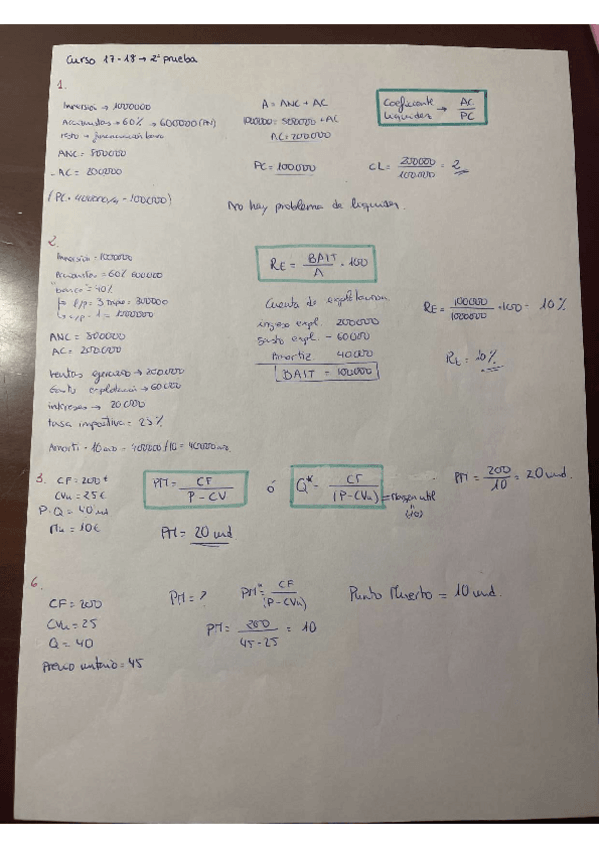 Curso 17-18 → 2ª prueba
1.
Inversión → 1000000
Accionistas → 60% → 600000 (PN)
resto → financiación banco
ANC = 800000
- AC = 200000
(PC = 400000/4 = 100000)
A = ANC + AC
1000000 = 800000 + AC
AC = 200000
PC = 100000
Coeficiente liquidez → AC/PC
CL = 200000/100000 = 2
No hay problema de liquidez.
2.
Inversión = 1000000
Accionistas = 60% 600000
"banco" = 40%
ANC = 800000
AC = 200000
Ventas ejercicio → 200000
Gastos explotación → 60000
intereses → 20000
tasa impositiva = 25%
Amorti = 10 años = 400000/10 = 40000
RE = BAIT/A · 100
Cuenta de explotación
ingreso expl. 200000
gasto expl. - 60000
Amortiz 40000
BAIT = 100000
RE = 100000/1000000 · 100 = 10%
3. CF = 200€
CVu = 25€
P. Q = 40 und
Mu = 10€
PM = CF/P - CV
ó
Q* = CF/(P - CVu) = Margen util (10)
PM = 20 und
PM = 200/10 = 20 und.
6.
CF = 200
CVu = 25
Q = 40
Precio unitario = 45
PM = ?
PM = CF/(P - CVu)
PM = 200/45-25 = 10
Punto Muerto = 10 und.